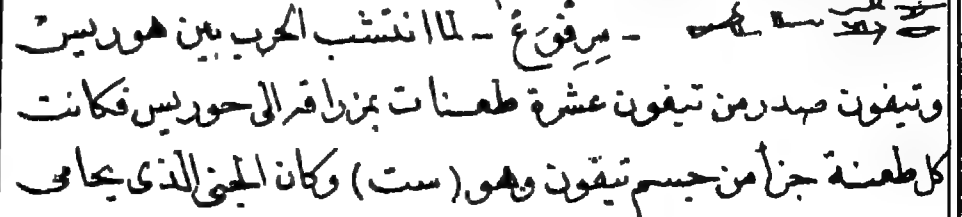 - مِرِفُوَغ - لما انتشب الحرب بين هوريس
وتيفون صدر من تيفون عشرة طعنات بمزراقه الى حوريس فكانت
كل طعنة جزأ من جسم تيفون وهو (ست) وكان الجنى الذى يحامى